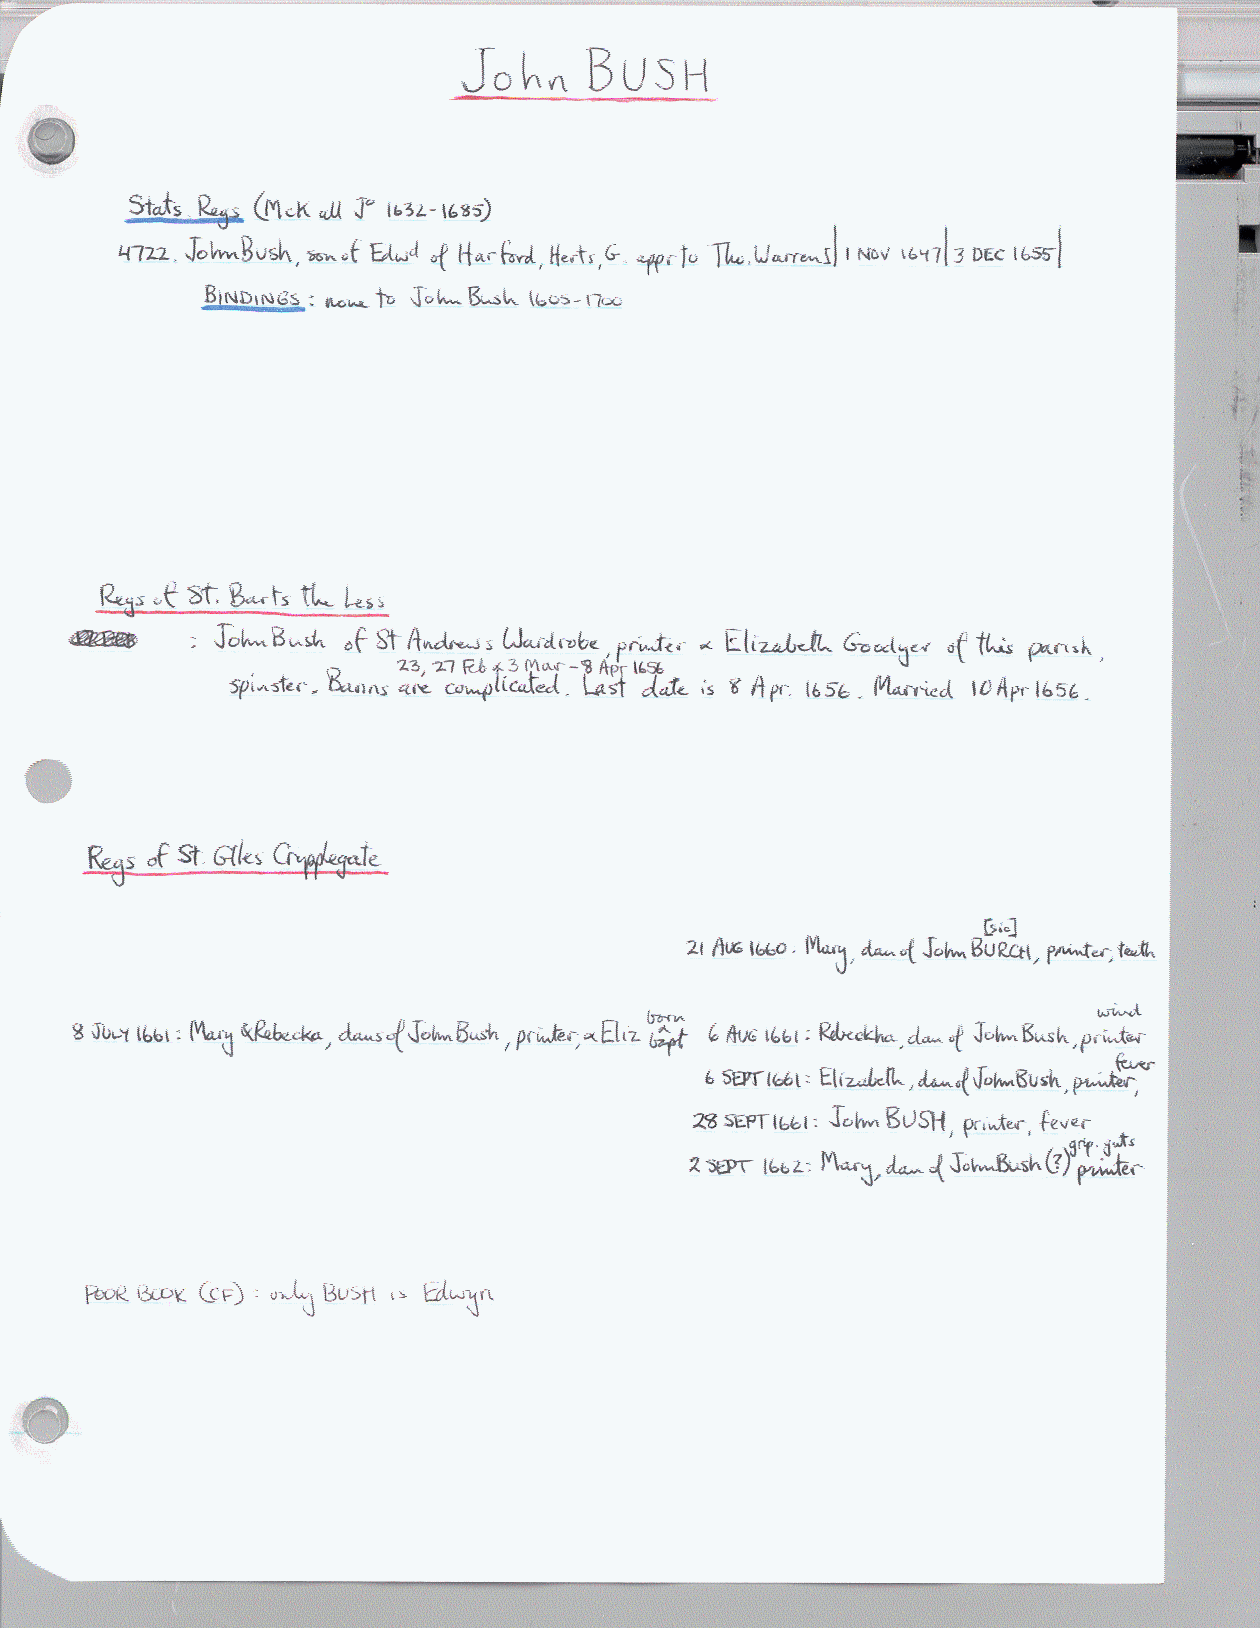 John BUSH
Stat's Regs (McK all Jº 1632-1685)
4722. John Bush, son of Edwd of Harford, Herts, G. appr to Tho. Warren S| 1 NOV 1647| 3 DEC 1655|
BINDINGS : none to John Bush 1605-1700
Regs of St. Barts the Less
: John Bush of St Andrews Wardrobe, printer & Elizabeth Goodyer of this parish,
23, 27 Feb & 3 Mar - 8 Apr 1656
spinster. Banns are complicated. Last date is 8 Apr. 1656. Married 10 Apr 1656.
Regs of St. GIles Crypplegate
[sic]
21 AUG 1660. Mary, dau of John BURCH, printer, teeth
born
wind
8 JULY 1661: Mary & Rebecka, daus of John Bush, printer, & Eliz & bapt 6 AUG 1661: Rebeckha, dau of John Bush, printer
fever
6 SEPT 1661: Elizabeth, dau of John Bush, printer,
28 SEPT 1661: John BUSH, printer, fever
grip. guts
2 SEPT 1662: Mary, dau of John Bush (?) printer
POOR BOOK (CF) : only BUSH is Edwyn